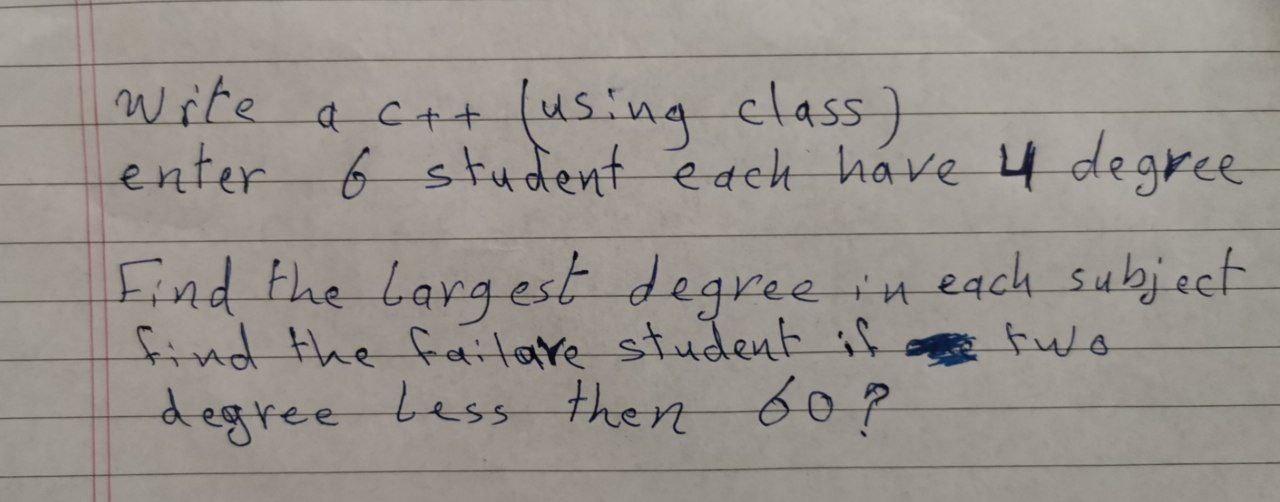 Write a c++ (using class)
enter 6 student each have 4 degree
Find the Largest degree in each subject
find the failare student if two
degree Less then 60?